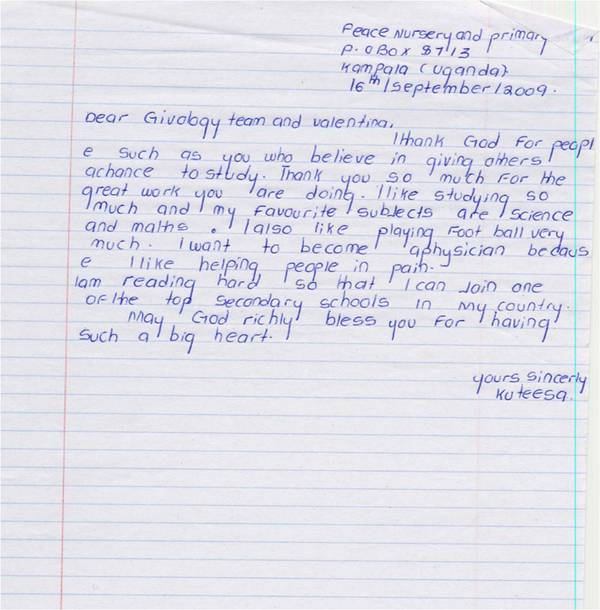 Peace Nursery and primary
P. O BOX 8713
Kampala (Uganda)
16th/September/2009.
Dear Givology team and valentina,
I thank God for peopl
e such as you who believe in giving others
achance to study. Thank you so much for the
great work you are doing. I like studying so
much and my favourite subjects are science
and maths. I also like playing foot ball very
much. I want to become aphysician becaus
e I like helping people in pain.
Iam reading hard so that I can Join one
of the top secondary schools in my country.
May God richly bless you for having
such a big heart.
yours sincerly
Kuteesa.